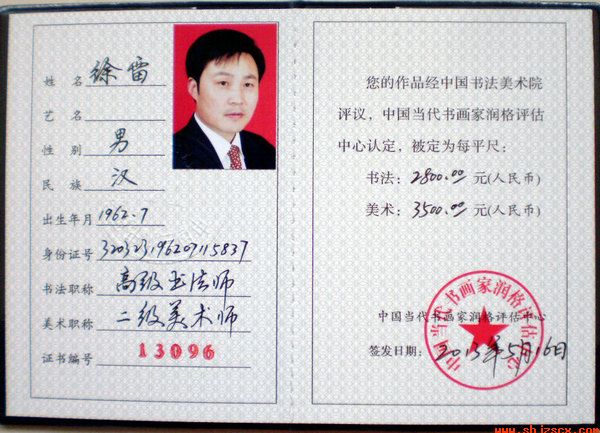 姓 名 徐雷
艺 名
性 别 男
民 族 汉
出生年月 1962.7
身份证号 320323196207115837
书法职称 高级书法师
美术职称 二级美术师
证书编号 13096
您的作品经中国书法美术院
评议，中国当代书画家润格评估
中心认定，被定为每平尺：
书法：2800.00 元(人民币)
美术：3500.00 元(人民币)
中国当代书画家润格评估中心
中国当代书画家润格评估中心
签发日期：2013年5月16日
www.shjzscx.com